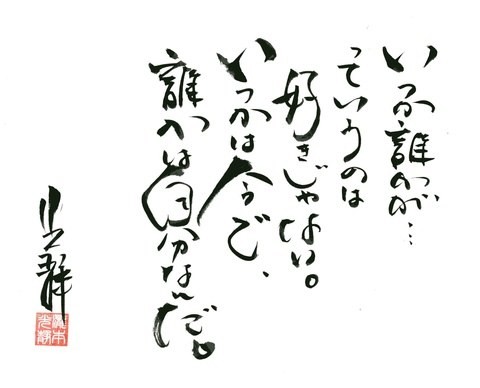 いつか誰かが…
っていうのは
好きじゃない。
いつかは今で、
誰かは自分なんだ。